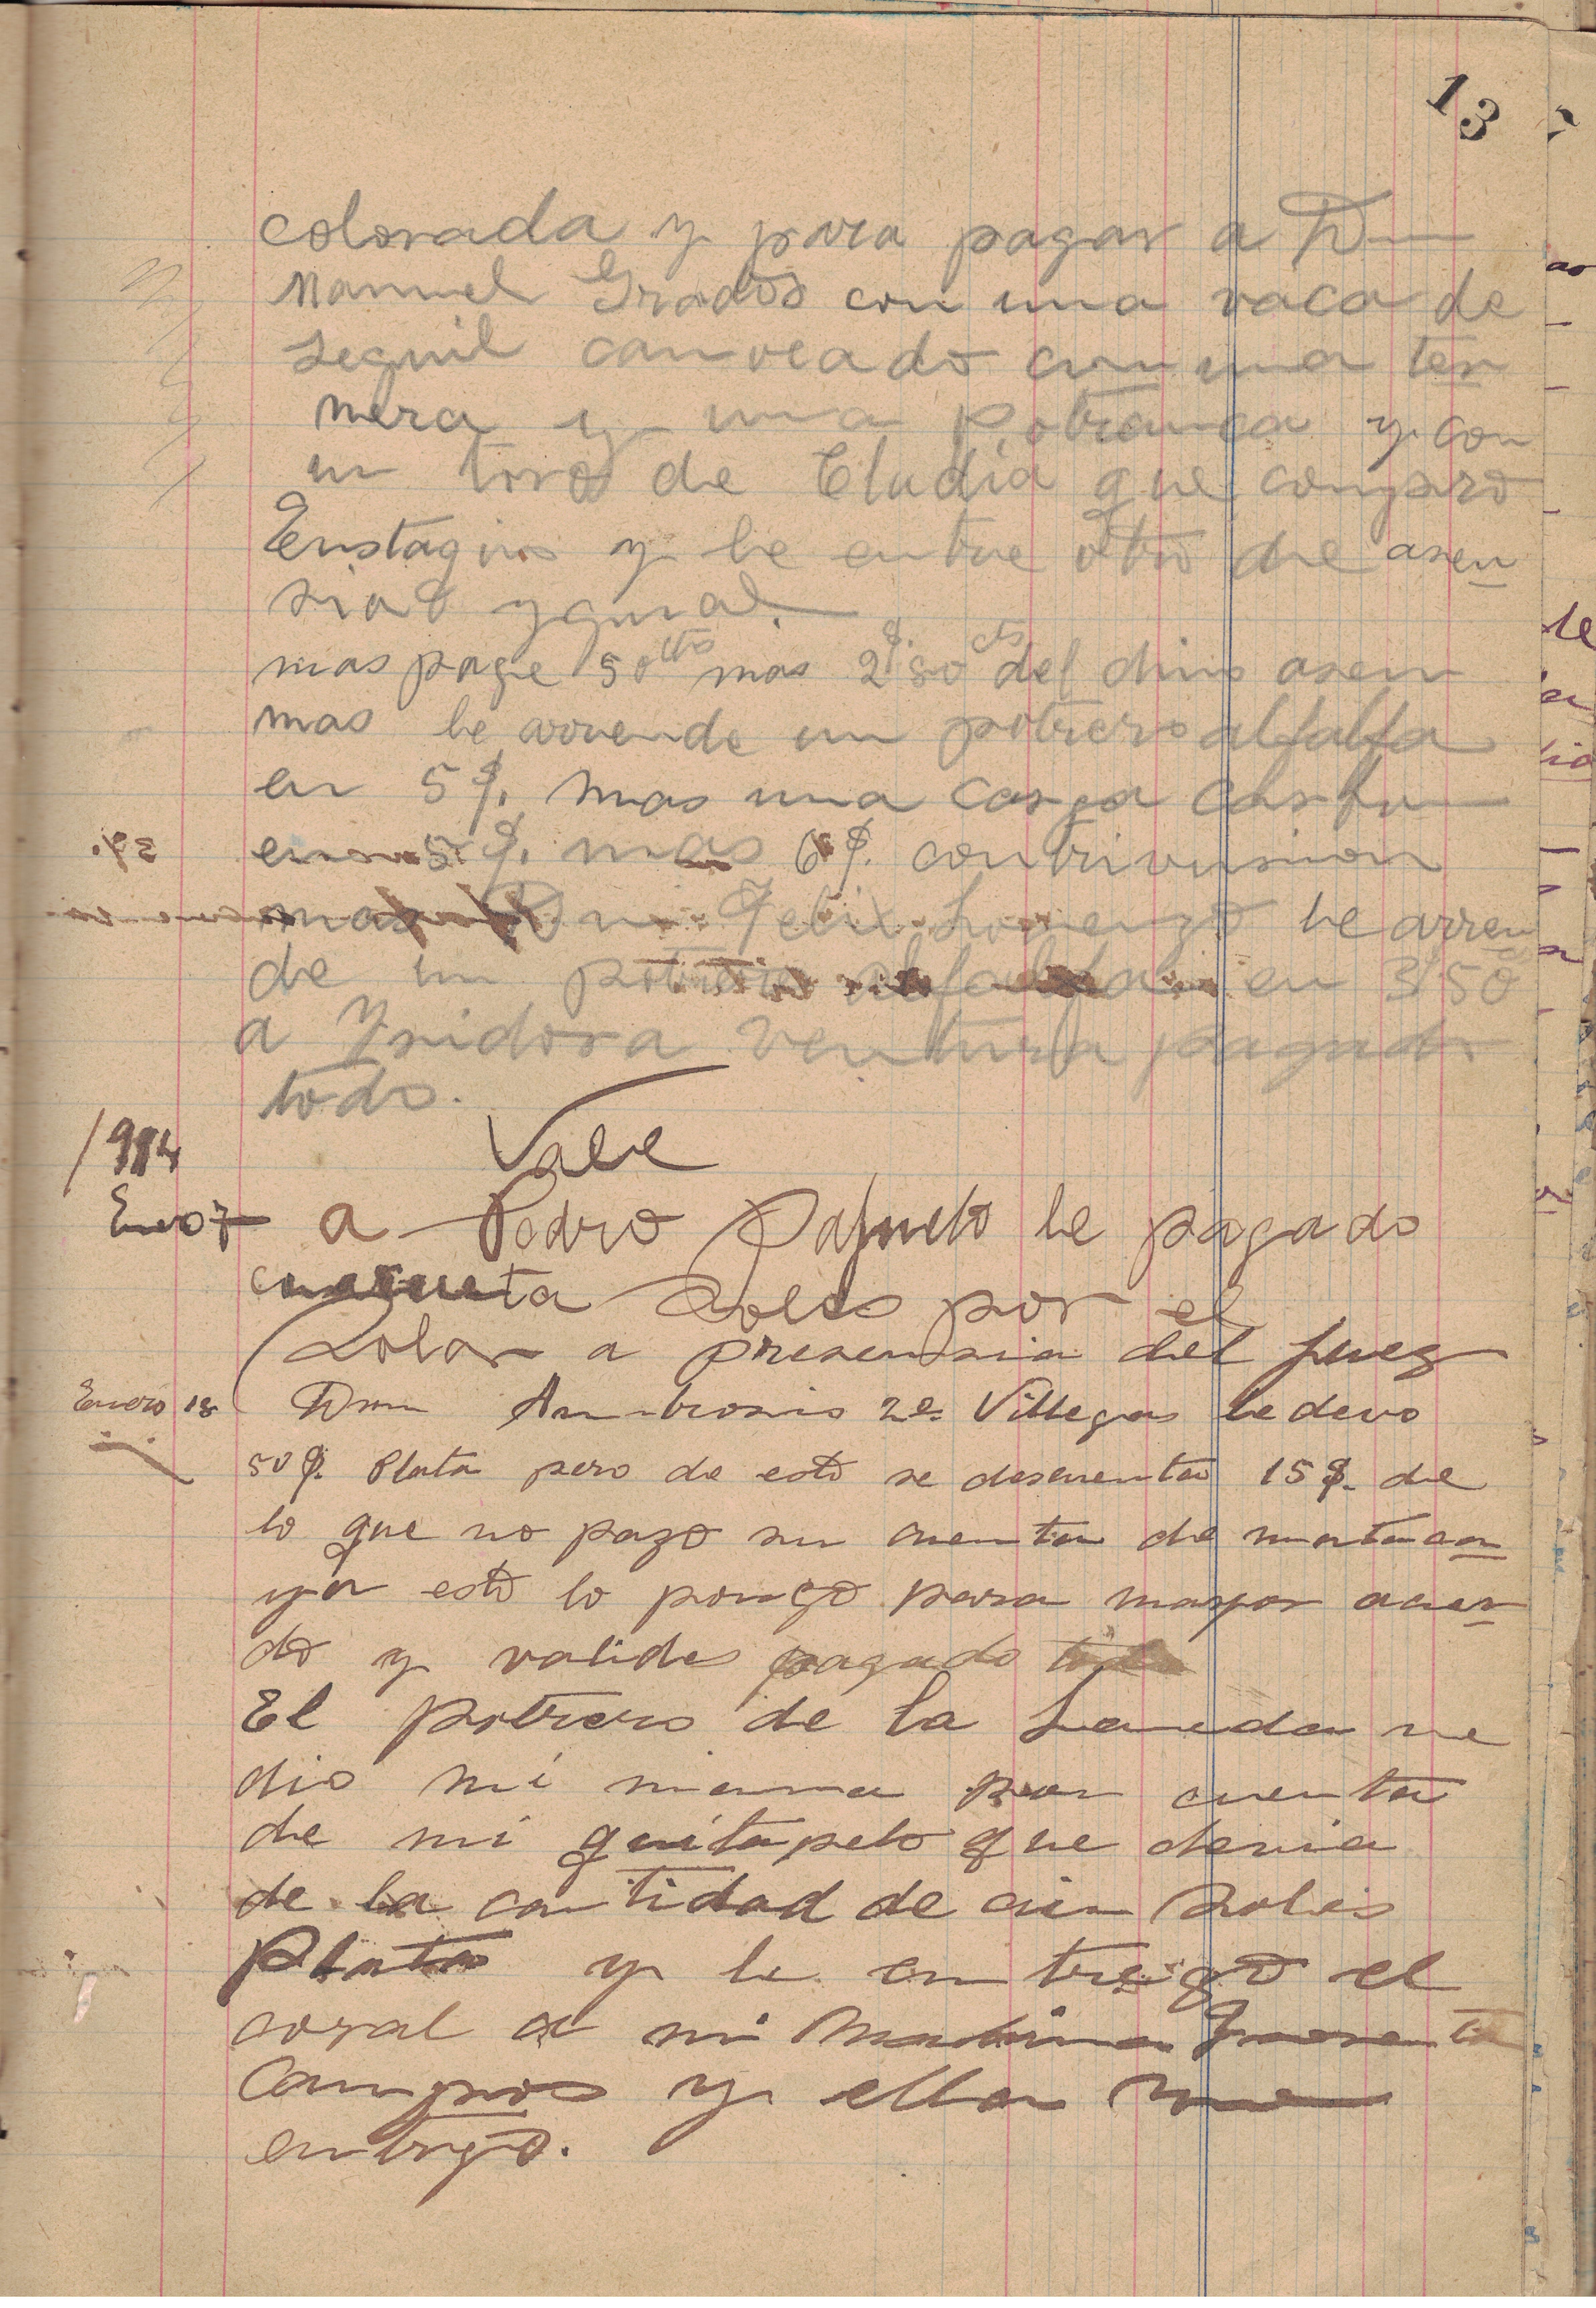 13
colorada y para pagar a Dn
Manuel Grados con una vaca de
seguil canveado con una ter
nera y una potranca y con
un toro de Cludia que conpro
Eustaquio y le entre otro de asen
sio ygual.
mas page 50 cts mas 2$.50 cts del dino asen
mas le arrende un potrero alfalfa
en 5$. mas una carga
en 5$. mas 6$. contrivusion
mas Dn Felix Lorenzo le arren
de un potrero alfalfa en 3/50
a Ysidora Ventura pagado
todo.
1914
Vale
Enero 7 a Pedro le pagado
cuarenta Soles por el
Solar a presensia del Juez
Enero 18 Dnn Ambrosio 2o. Villegas le devo
50$. Plata pero de esto se descuenta 15$. de
lo que no pago su cuenta de
ya esto lo pongo para mayor acuer
do y valides pagado todo
El potrero de la me
dio mi mama por cuenta
de mi quitapelo que devia
de la cantidad de cien Soles
Plata y le entrego el
coral a mi Madrina
Campos y ella me
entrego.